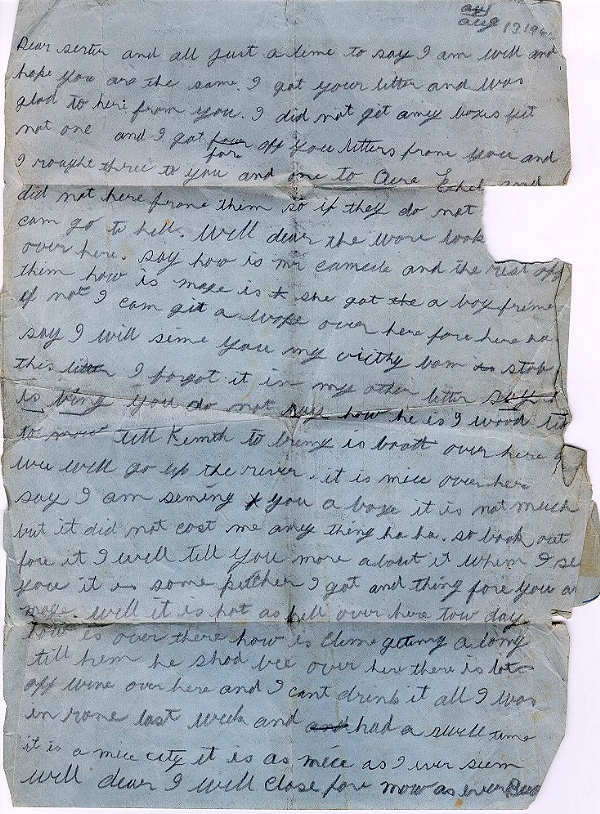 aug
aug 17 194
Dear serter and all just a lime to say I am well and
hope you are the same. I got your letter and was
glad to heri from you. I did not get amey boxes yet
not one and I got four off you letters frome youe and
fore
I rought three to you and one to Acra Echel and
did not here frome them so if they do not
cam go to hell. Well dear the wore look
over here. say how is mr camcile and the rest off
them how is maxe is she got the a boy frime
if not I cam git a wope over here fore here ha
say I will sime youe my victhy bom is stob
this letter I forgot it in my other letter say
is bing you do not say how he is I wood
to mow till Kemith to bring is boatt over here
wee well go up the river. it is mice over her
say I am seming you a boxe it is not much
but it did not cost me amy thing ha ha. so book out
fore it I will tell you more about it when I se
youe it is some pitcher I got and thing fore you a
maxe. well it is hot as hell over here tow day
how is over there how is Clime geting a lomg
till him he shod bee over here there is lots
off wine over here and I cant drink it all I was
in rome last week and and had a swell time
it is a mice city it is as mice as I iver seem
Well dear I will close fore mow as ever Bud